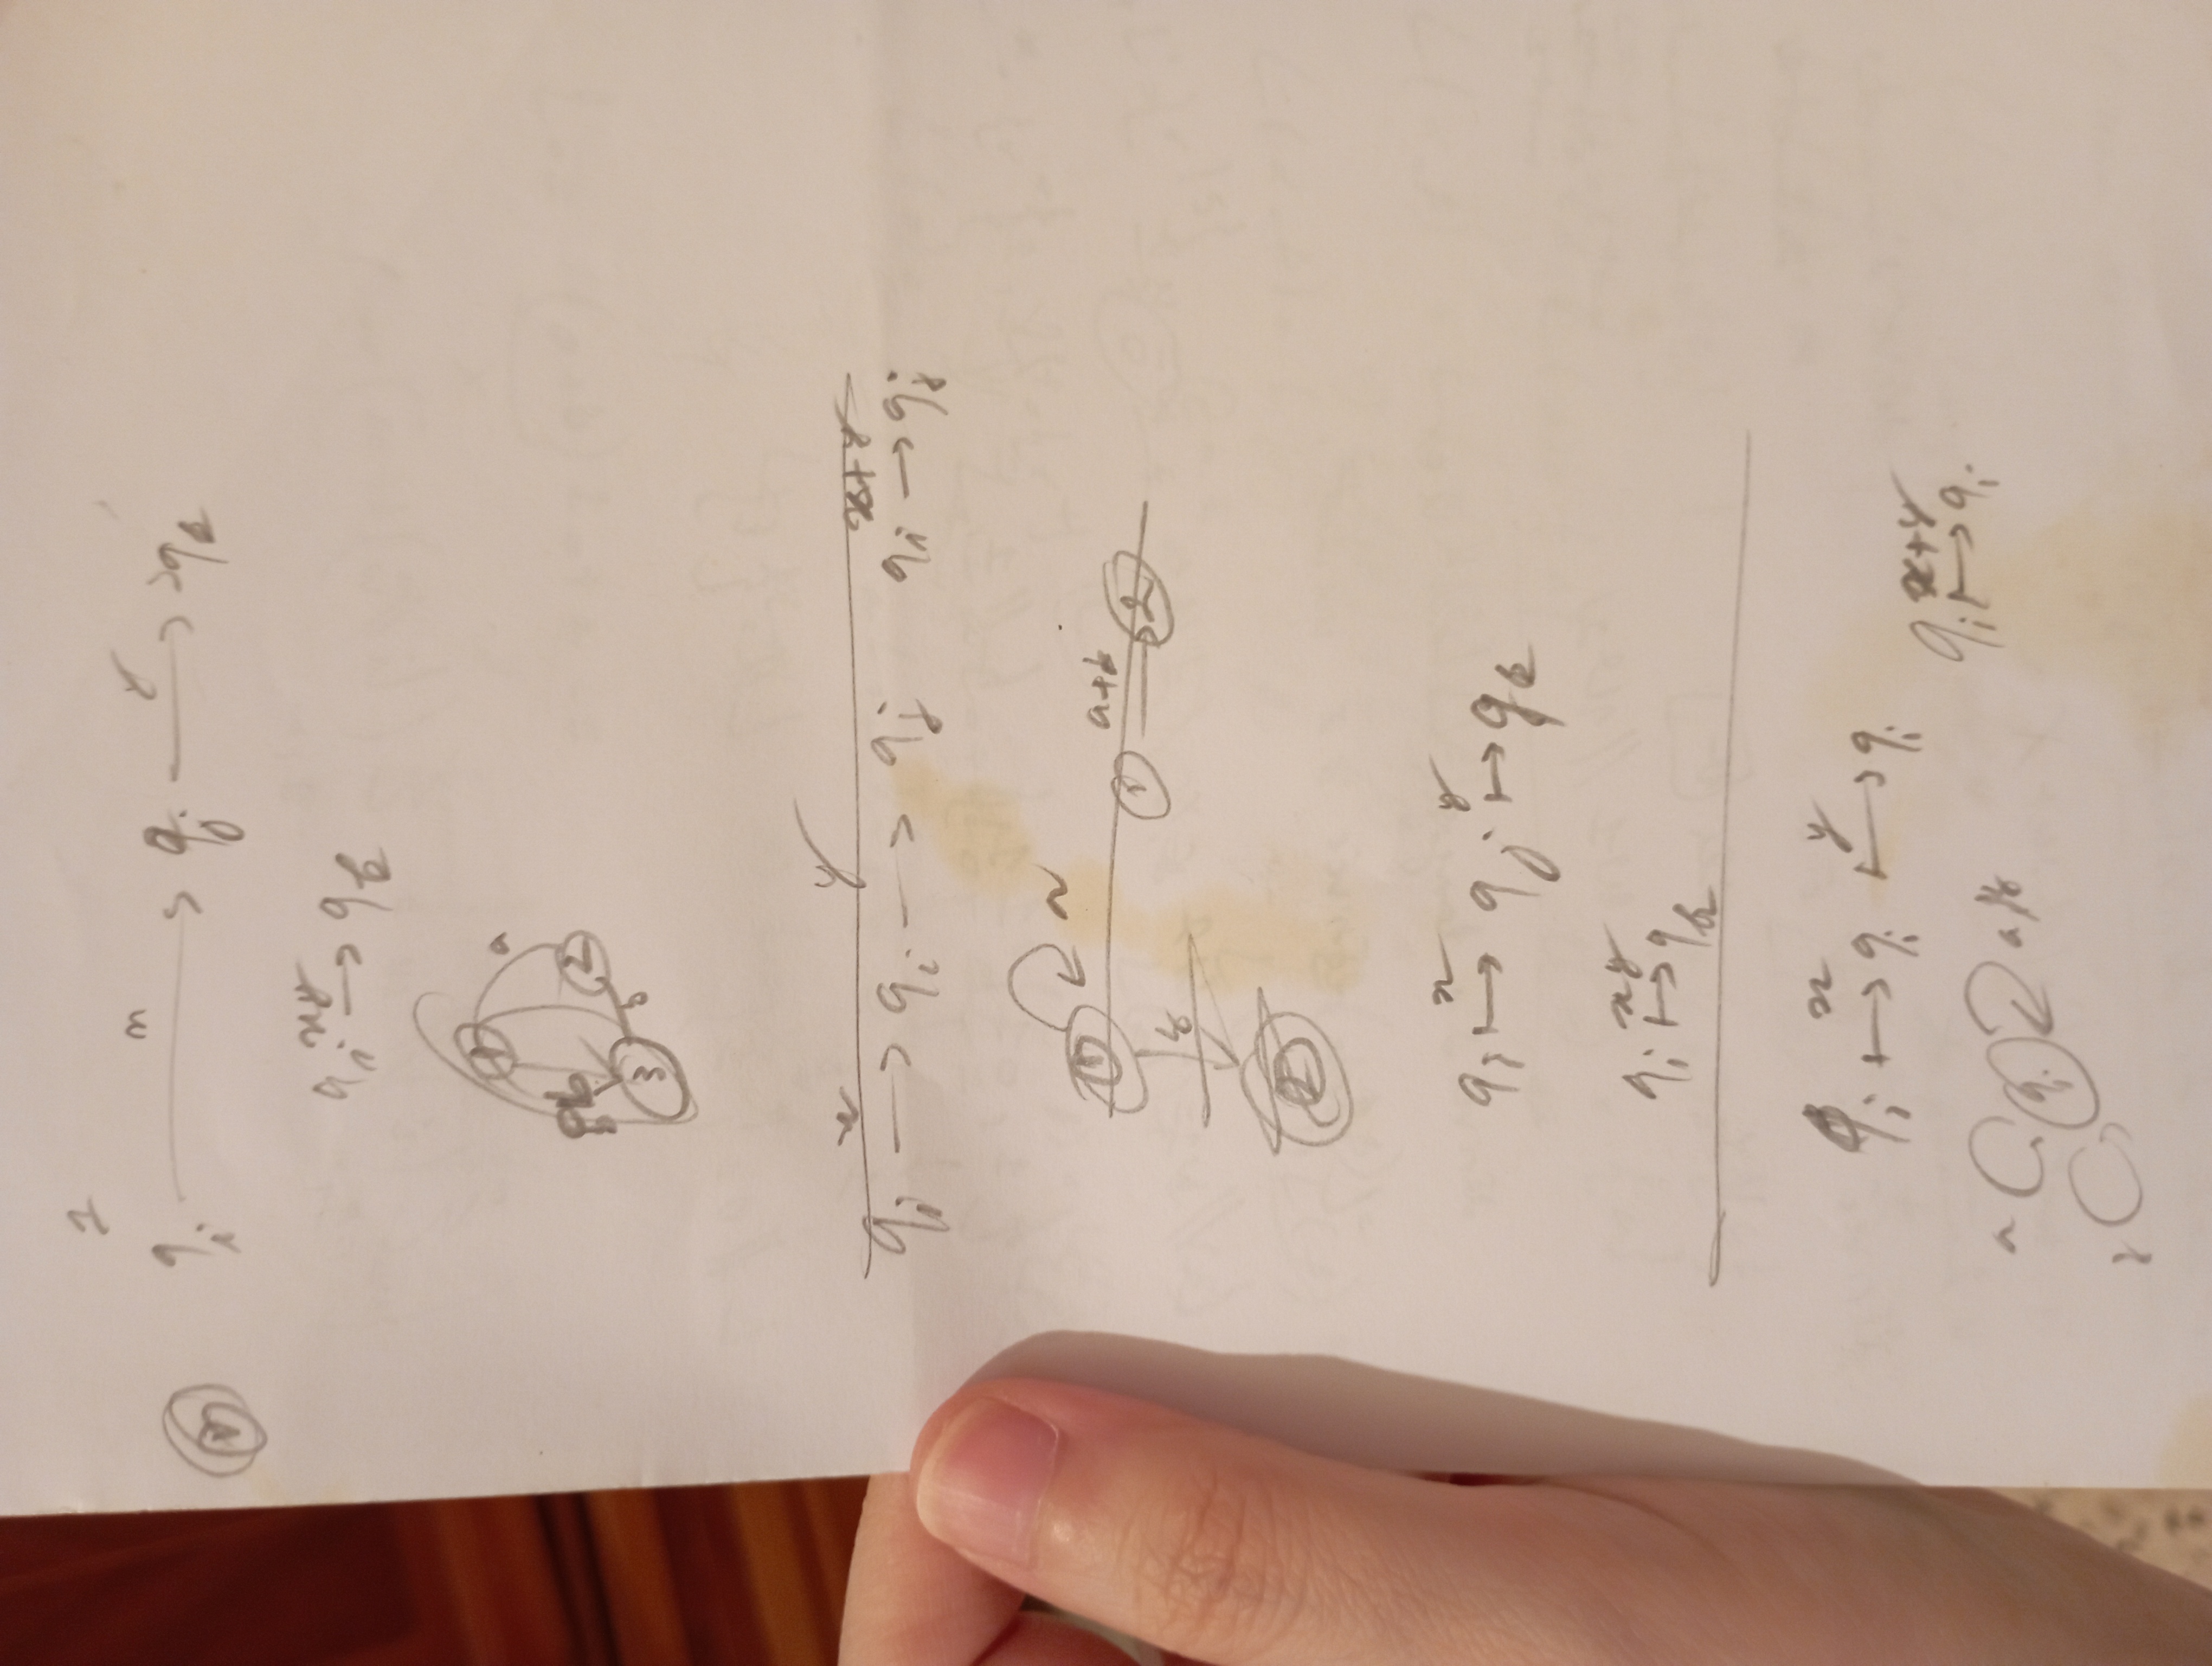 1
q_i —x→ q_j —y→ q_k
q_i —xy→ q_k
1
a
2
b
3
q_i —x→ q_i —y→ q_j q_i —x+y→ q_j
1
1 —a+b→ 2
2
q_i ↦x q_j ↦y q_k
q_i ↦xy q_k
q_i ↦x q_i ↦y q_i
q_i ↦x+y q_i
a q_i